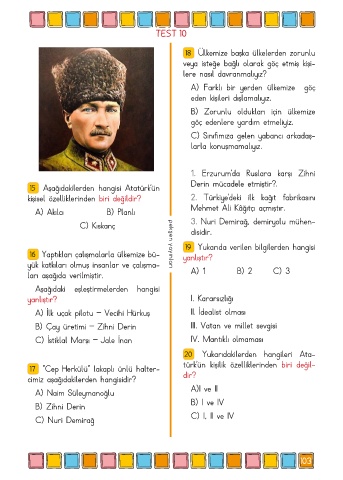 TEST 10
15 Aşağıdakilerden hangisi Atatürk'ün
kişisel özelliklerinden biri değildir?
A) Akıllı B) Planlı
C) Kıskanç
16 Yaptıkları çalışmalarla ülkemize bü-
yük katkıları olmuş insanlar ve çalışma-
ları aşağıda verilmiştir.
Aşağıdaki eşleştirmelerden hangisi
yanlıştır?
A) İlk uçak pilotu – Vecihi Hürkuş
B) Çay üretimi – Zihni Derin
C) İstiklal Marşı – Jale İnan
17 "Cep Herkülü" lakaplı ünlü halter-
cimiz aşağıdakilerden hangisidir?
A) Naim Süleymanoğlu
B) Zihni Derin
C) Nuri Demirağ
18 Ülkemize başka ülkelerden zorunlu
veya isteğe bağlı olarak göç etmiş kişi-
lere nasıl davranmalıyız?
A) Farklı bir yerden ülkemize göç
eden kişileri dışlamalıyız.
B) Zorunlu oldukları için ülkemize
göç edenlere yardım etmeliyiz.
C) Sınıfımıza gelen yabancı arkadaş-
larla konuşmamalıyız.
1. Erzurum'da Ruslara karşı Zihni
Derin mücadele etmiştir?.
2. Türkiye'deki ilk kağıt fabrikasını
Mehmet Ali Kâğıtçı açmıştır.
3. Nuri Demirağ, demiryolu mühen-
disidir.
19 Yukarıda verilen bilgilerden hangisi
yanlıştır?
A) 1 B) 2 C) 3
I. Kararsızlığı
II. İdealist olması
III. Vatan ve millet sevgisi
IV. Mantıklı olmaması
20 Yukarıdakilerden hangileri Ata-
türk'ün kişilik özelliklerinden biri değil-
dir?
A)I ve II
B) I ve IV
C) I, II ve IV
103